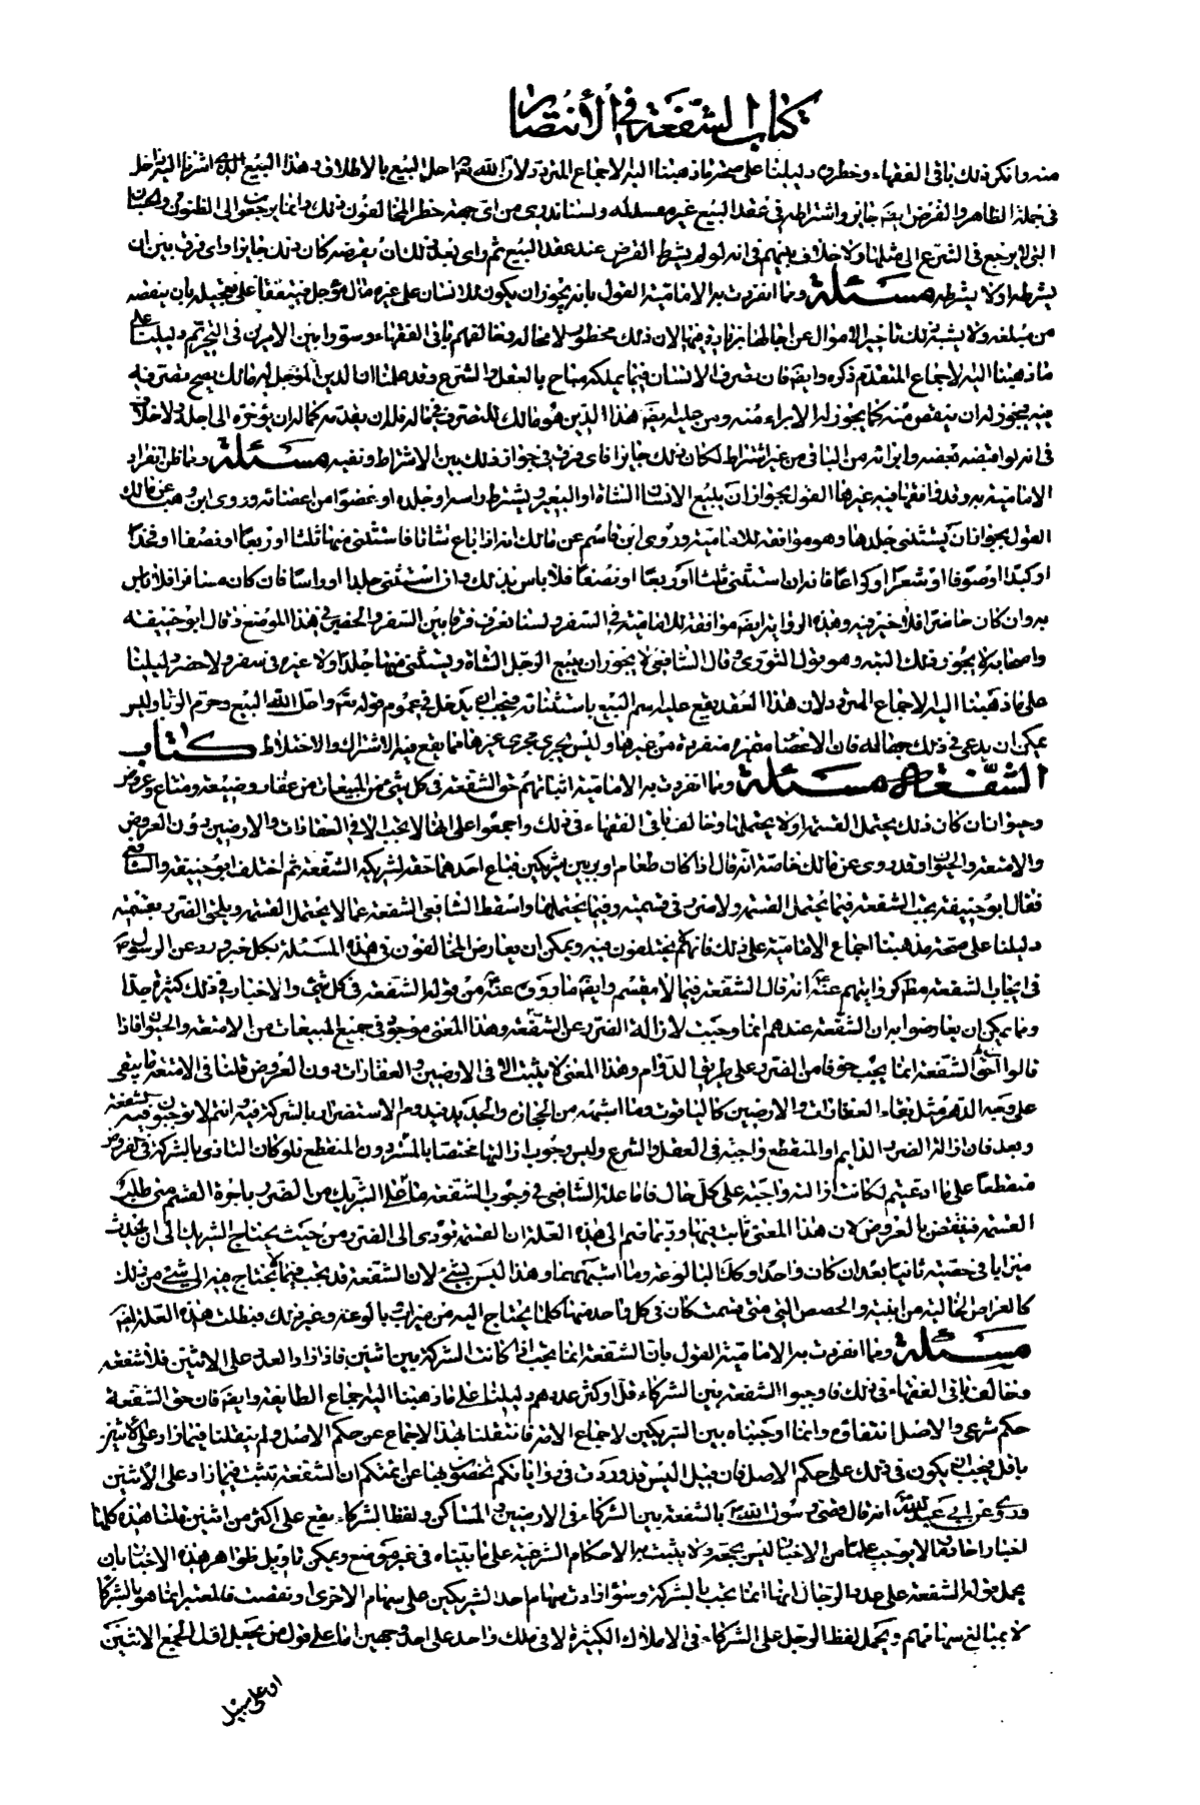 كتاب الشفعة في الأنتصار
منه وانكر ذلك باقي الفقهاء وحظروه دليلنا على صحة ما ذهبنا اليه الاجماع المتردد ولان الله تعم احل البيع بالاطلاق وهذا البيع الذي اشرنا اليه داخل
في جملة الظاهر والقرض ايضا جايز واشتراطه في عقد البيع غير مفسد له ولسنا ندري من اي جهة حظر المخالفون ذلك وانما يرجعون الى الظنون والحسبان
التي لا يرجع في الشرع الى مثلها ولا خلاف بينهم في انه لو لم يشترط القرض عند عقد البيع ثم راى بعد ذلك ان يقرضه كان ذلك جايزا واي فرق بين ان
يشرطه او لا يشرطه مسئلة ومما انفردت به الامامية القول بانه يجوز ان يكون للانسان على غيره مال مؤجل فيتفقا على تعجيله بان ينقصه
من مبلغه ولا يشبه ذلك تاخير الاموال عن اجالها بزيادة فيها لان ذلك محظور لا محالة وخالفهم باقي الفقهاء وسووا بين الامرين في التحريم دليلنا على
ما ذهبنا اليه الاجماع المتقدم ذكره وايضا فان تصرف الانسان فيما يملكه مباح بالعقل والشرع وقد علمنا ان الدين المؤجل له مالك يصح تصرفه
فيه فيجوز له ان ينقص منه كما يجوز له الابراء منه ومن عليه هذا الدين هو مالك للتصرف في ماله فله ان يقدمه كما له ان يؤخره الى اجله ولا خلاف
في انه لو اقبضه بعضه وابراه من الباقي من غير اشتراط لكان ذلك جايزا فاي فرق في جواز ذلك بين الاشتراط ونفيه مسئلة ومما ظن انفراد
الامامية به وقد وافقها فيه غيرها القول بجواز ان يبيع الانسان الشاة او البعير ويشترط راسه او جلده او عضوا من اعضائه وروى ابن وهب عن مالك
القول بجواز ان يستثنى جلدها وهو موافقة للامامية وروى ابن قاسم عن مالك انه اذا باع شاة فاستثنى منها ثلثا او ربعا او نصفا او فخذا
او كبدا او صوفا او شعرا او كراعا فانه ان استثنى ثلثا او ربعا او نصفا فلا باس بذلك وان استثنى جلدا او راسا فان كان مسافرا فلا باس
به وان كان حاضرا فلا خير فيه وهذه الرواية ايضا موافقة للامامية في السفر ولسنا نعرف فرقا بين السفر والحضر في هذا الموضع وقال ابو حنيفة
واصحابه لا يجوز ذلك البتة وهو قول الثوري وقال الشافعي لا يجوز ان يبيع الرجل الشاة ويستثنى منها جلدا ولا غيره في سفر ولا حضر دليلنا
على ما ذهبنا اليه الاجماع المتردد ولان هذا العقد يقع عليه اسم البيع باستثنائه فيجب ان يدخل في عموم قوله تعم واحل الله البيع وحرم الربا وليس
يمكن ان يدعى في ذلك جهالة فان الاعضاء متميزة منفردة من غيرها وليس يجري مجرى غيرها مما يقع فيه الاشتراك والاختلاط كتاب
الشفعة مسئلة ومما انفردت به الامامية اثباتهم حق الشفعة في كل شيء من المبيعات من عقار وضيعة ومتاع وعروض
وحيوان كان ذلك يحتمل القسمة او لا يحتملها وخالف باقي الفقهاء في ذلك واجمعوا على انها لا يجب الا في العقارات والارضين دون العروض
والامتعة والحيوان وقد روى عن مالك خاصة انه قال اذا كان طعام او بر بين شريكين فباع احدهما حقه لشريكه الشفعة ثم اختلف ابو حنيفة والشافعي
فقال ابو حنيفة يجب الشفعة فيما يحتمل القسمة ولا ضرر في قسمته وفيما يحتملها واسقط الشافعي الشفعة عما لا يحتمل القسمة ويلحق الضرر بقسمته
دليلنا على صحة مذهبنا اجماع الامامية على ذلك فانهم لا يختلفون فيه ويمكن ان يعارض المخالفون في هذه المسئلة بكل خبر ورد عن الرسول ص
في ايجاب الشفعة مطلقا كروايتهم عنه انه قال الشفعة فيما لا يقسم وايضا ما روى عنه من قوله الشفعة في كل شيء والاخبار في ذلك كثيرة جدا
ومما يمكن ان يعارضوا به ان الشفعة عندهم انما وجبت لازالة الضرر عن الشفيع وهذا المعنى موجود في جميع المبيعات من الامتعة والحيوان فاذا
قالوا حق الشفعة انما يجب خوفا من الضرر على طريق الدوام وهذا المعنى لا يثبت الا في الارضين والعقارات دون العروض قلنا في الامتعة ما يبقى
على وجه الدهر مثل بقاء العقارات والارضين كالياقوت وما اشبهه من الحجارة والحديد فيدوم الاستضرار بالشركة فيه وانتم لا توجبون فيه الشفعة
وبعد فان ازالة الضرر الدايم او المنقطع واجبة في العقل والشرع وليس وجوب ازالتها مختصا بالمستمر دون المنقطع فلو كان التاذي بالشركة في العروض
منقطعا على ما ادعيتم لكانت ازالته واجبة على كل حال فاما علة الشافعي في وجوب الشفعة ما يدخل الشريك من الضرر باجرة القسم متى طلب
القسمة فينتقض بالعروض لان هذا المعنى ثابت فيها وربما ضم الى هذه العلة ان القسمة تؤدي الى الضرر من حيث يحتاج الشريك الى ان يحدث
ميزابا في حصته ثانيا بعد ان كان واحدا وكذا البالوعة وما اشبههما وهذا ليس بشيء لان الشفعة قد يجب فيما لا يحتاج فيه الى شيء من ذلك
كالعراص الخالية من ابنية والحصص التي متى قسمت كان في كل واحد منها كلما يحتاج اليه من ميزاب بالوعة وغير ذلك فبطلت هذه العلة ايضا
مسئلة ومما انفردت به الامامية القول بان الشفعة انما يجب اذا كانت الشركة بين اثنين فاذا زاد العدد على الاثنين فلا شفعة
وخالف باقي الفقهاء في ذلك فاوجبوا الشفعة بين الشركاء قل او كثر عددهم دليلنا على ما ذهبنا اليه اجماع الطائفة وايضا فان حق الشفعة
حكم شرعي والاصل انتفاؤه وانما اوجبناه بين الشريكين لاجماع الامة فانتقلنا بهذا الاجماع عن حكم الاصل ولم ينقلنا فيما زاد على الاثنين
ناقل فيجب ان يكون في ذلك على حكم الاصل فان قيل اليس قد وردت في رواياتكم عن ائمتكم ان الشفعة تثبت فيما زاد على الاثنين
وروى عن ابي عبد الله انه قال قضى رسول الله ص بالشفعة بين الشركاء في الارضين والمساكن ولفظ الشركاء يقع على اكثر من اثنين قلنا هذه كلها
اخبار احاد لا يوجب علما من الاخبار ليس بحجة ولا يثبت به الاحكام الشرعية على ما بيناه في غير موضع ويمكن تاويل ظواهر هذه الاخبار بان
يحمل قوله الشفعة على عدد الرجال انها انما يجب بالشركة وسواء زادت سهام احد الشريكين على سهام الاخرى او نقصت فالمعتبر انما هو بالشركاء
لا بمبالغ سهامهم ويحمل لفظ الرجل على الشركاء في الاملاك الكثيرة لا في ملك واحد على احد وجهين اما على قول من يجعل اقل الجمع الاثنين